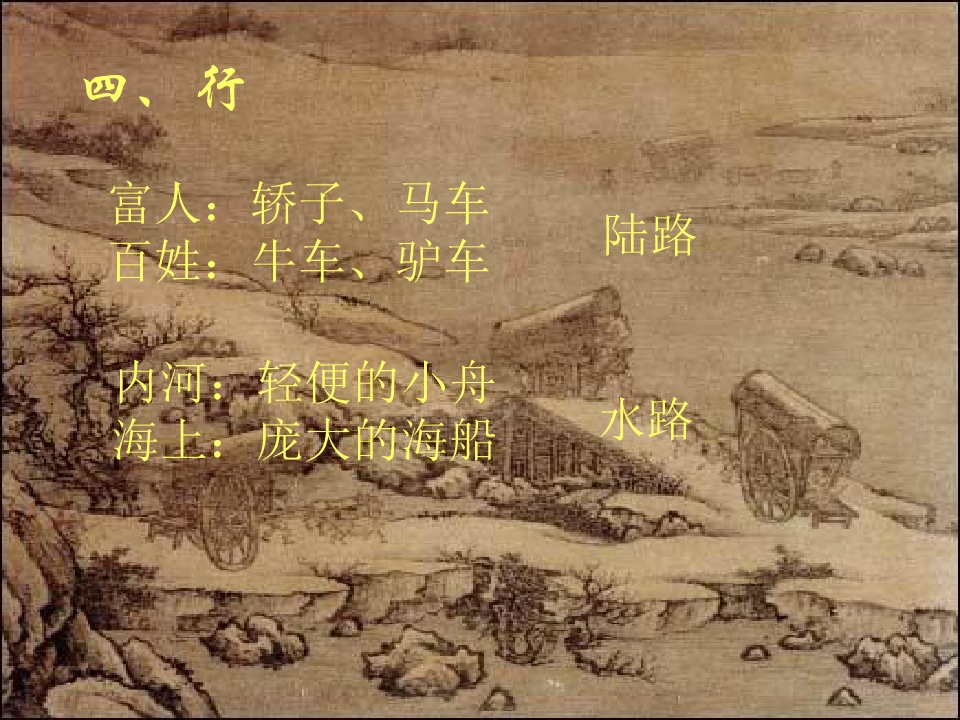 四、行
富人：轿子、马车
百姓：牛车、驴车
陆路
内河：轻便的小舟
海上：庞大的海船
水路